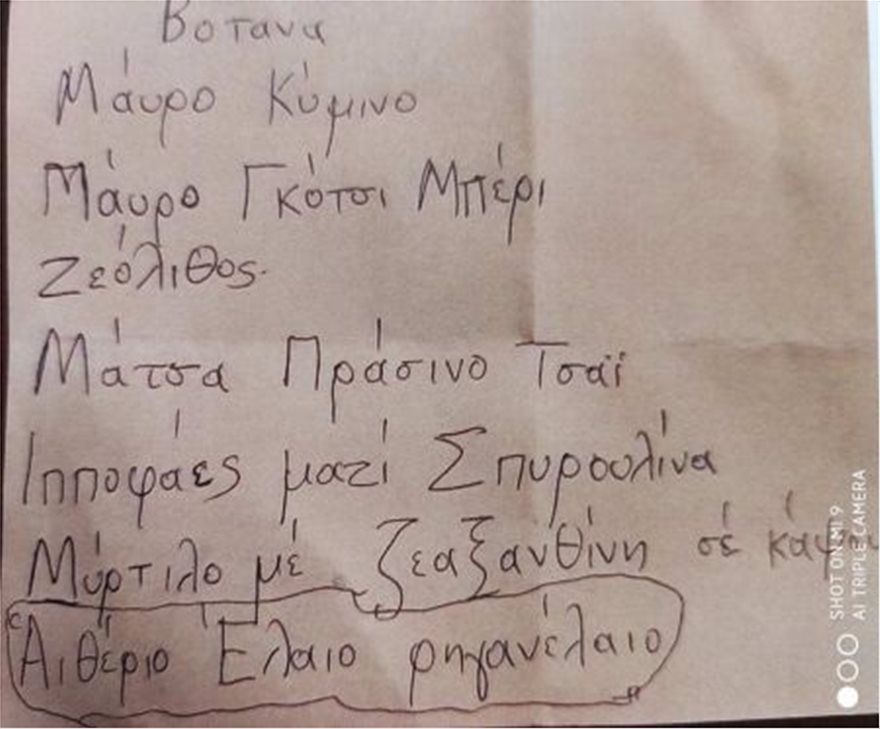 Βοτανα
Μάυρο Κύμινο
Μάυρο Γκότσι Μπέρι
Ζεόλιθος.
Μάτσα Πράσινο Τσαϊ
Ιπποφάές μαζί Σπυρουλίνα
Μύρτιλο μέ ζεαξάνθίνη σέ
Αιθέριο Έλαιο ρηγανέλαιο
SHOT ON MI 9
AI TRIPLE CAMERA